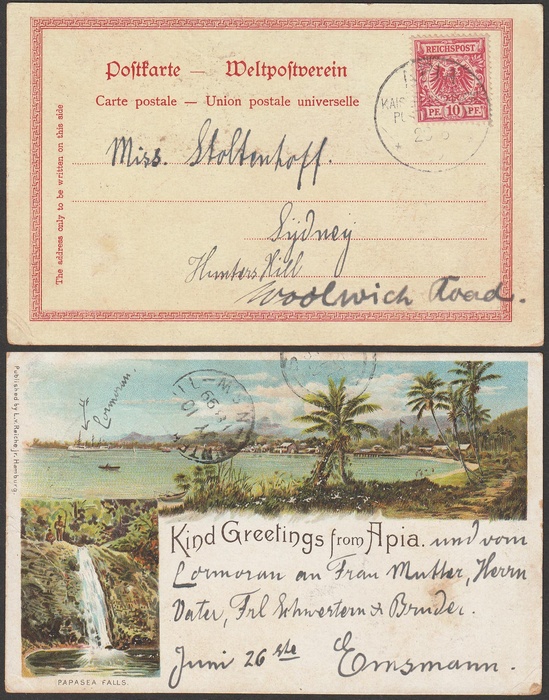 Postkarte — Weltpostverein
Carte postale — Union postale universelle
REICHSPOST
PF 10 PF
The address only to be written on this side
Miss. Stoltenhoff.
Sydney
Hunters Hill
Woolwich Road.
Published by L.v.Reiche jr. Hamburg.
Cormoran.
Kind Greetings from Apia. und vom
Cormoran an Frau Mutter, Herrn
Vater, Frl Schwestern & Bruder.
Juni 26 ste Emsmann.
PAPASEA FALLS.